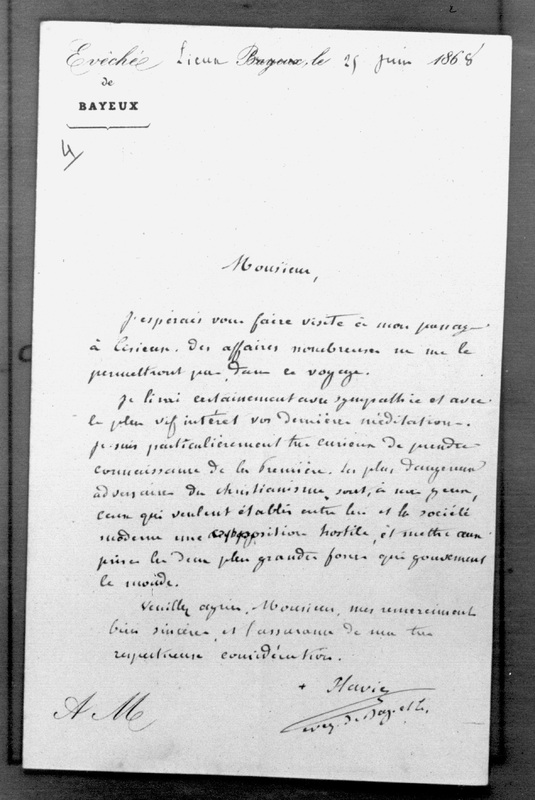 Evêché Lisieux Bayeux, le 25 juin 1868
de
BAYEUX
4
Monsieur,
J'espérais vous faire visite à mon passage
à Lisieux. Des affaires nombreuses ne me le
permettront pas dans ce voyage.
Je lirai certainement avec sympathie et avec
le plus vif intérêt vos dernières méditations.
Je suis particulièrement très curieux de prendre
connaissance de la première. Les plus dangereux
adversaires du christianisme sont, à mes yeux,
ceux qui veulent établir entre lui et la société
moderne une opposition hostile, et mettre aux
prises les deux plus grandes forces qui gouvernent
le monde.
Veuillez agréer, Monsieur, mes remerciements
bien sincères et l'assurance de ma très
respectueuse considération.
+ Flavien
évêq. de Bay. et Lis.
A M